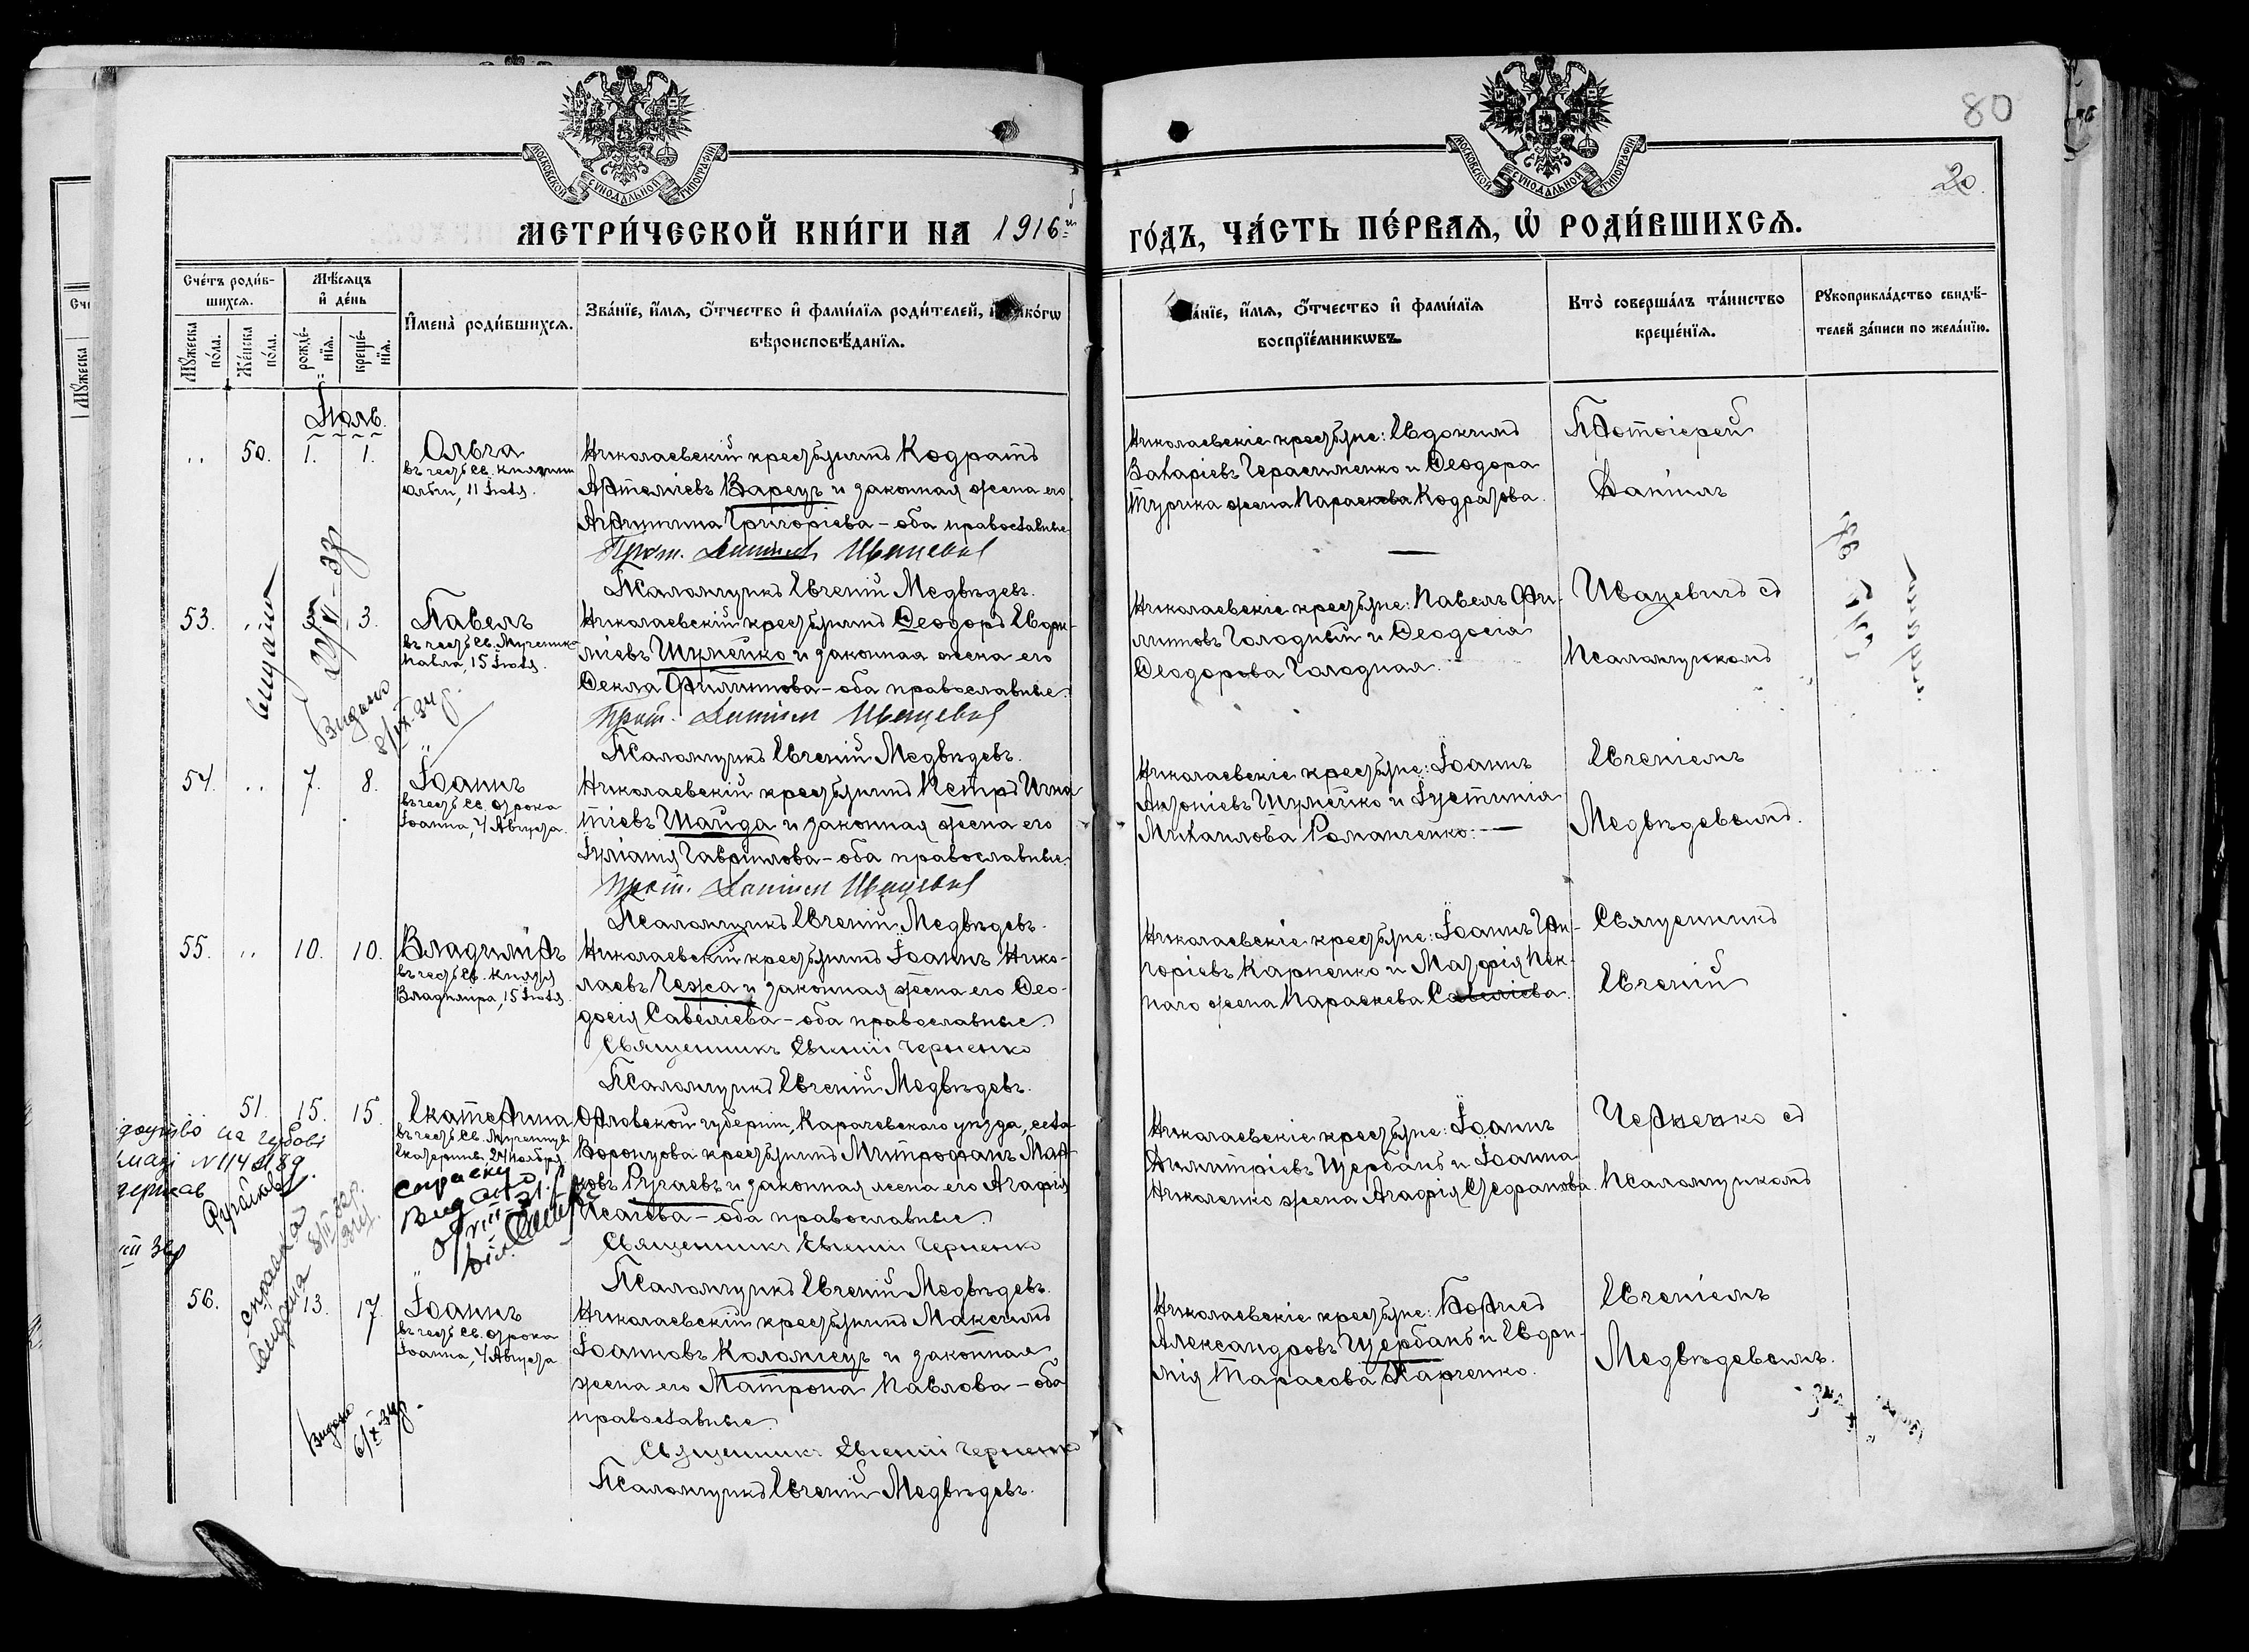 80
20.
МОСКОВСКОЙ СѴНОДАЛЬНОЙ ТИПОГРАФІИ
МОСКОВСКОЙ СѴНОДАЛЬНОЙ ТИПОГРАФІИ
МЕТРИ́ЧЕСКОЙ КНИ́ГИ НА 1916й
ГО́ДЪ, ЧА́СТЬ ПЕ́РВАѦ, Ѡ҆ РОДИ́ВШИХСѦ.
Сче́тъ роди́в-
шихсѧ.
Мѣ́сѧцъ
и҆ де́нь
Мꙋ́жеска
по́ла.
Же́нска
по́ла.
рожде́-
нїѧ.
креще́-
нїѧ.
И҆мена̀ роди́вшихсѧ.
Зва́нїе, и҆́мѧ, ѻ҆́тчество и҆ фами́лїѧ роди́телей,
вѣроисповѣ́данїѧ.
и҆́мѧ, ѻ҆́тчество и҆ фами́лїѧ
воспрїе́мникѡвъ.
Кто̀ соверша́лъ та́инство
креще́нїѧ.
Рꙋкоприкла́дство свидѣ́-
телей за́писи по жела́нїю.
Іюль.
,, 50. 1. 1. Ольга
въ честь св. княгини
Ольги, 11 Іюля.
Николаевскій крестьянинъ Кодратъ
Артеміевъ Варецъ и законная жена его
Агрипина Григоріева – оба православные.
Прот. Даніилъ Иваневич
Псаломщикъ Евгеній Медвѣдевъ.
Николаевскіе крестьяне: Евдокимъ
Захаріевъ Герасименко и Ѳеодора
Турика жена Параскева Кодратова.
Протоіерей
Даніилъ
53. ,, 3. Павелъ
въ честь св. Мученика
Павла, 15 Іюля.
Николаевскій крестьянинъ Ѳеодоръ Евфи-
міевъ Шулейко и законная жена его
Ѳекла Филиппова – оба православные.
Прот. Даніилъ Иваневич
Псаломщикъ Евгеній Медвѣдевъ.
Николаевскіе крестьяне: Павелъ Фи-
липповъ Голодный и Ѳеодосія
Ѳеодорова Голодная.
Иваневичъ съ
Псаломщикомъ
Видано
8/IX-34р.
54. ,, 7. 8. Іоаннъ
въ честь св. отрока
Іоанна, 4 Августа.
Николаевскій крестьянинъ Петръ Игна-
тіевъ Шайда и законная жена его
Іуліанія Гавриилова – оба православные.
Прот. Даніилъ Иваневич
Псаломщикъ Евгеній Медвѣдевъ.
Николаевскіе крестьяне: Іоаннъ
Антоніевъ Шулейко и Іустинія
Михаилова Романченко.
Евгеніемъ
Медвѣдевымъ.
55. ,, 10. 10. Владиміръ
въ честь св. князя
Владимира, 15 Іюля.
Николаевскій крестьянинъ Іоаннъ Нико-
лаевъ Гежа и законная жена его Ѳео-
досія Савеліева – оба православные.
Священникъ Евгеній Черненко
Псаломщикъ Евгеній Медвѣдевъ.
Николаевскіе крестьяне: Іоаннъ Гри-
горіевъ Карпенко и
жена Параскева Савеліева.
Священникъ
Евгеній
51. 15. 15. Екатерина
въ честь св. Мученицы
Екатерины, 24 Ноября.
Орловской губерніи, Карачевскаго уѣзда, села
Воронцова крестьянинъ Митрофанъ Мар-
ковъ Ругаевъ и законная жена его Агафія
Исаіева – оба православные.
Священникъ Евгеній Черненко
Псаломщикъ Евгеній Медвѣдевъ.
Николаевскіе крестьяне: Іоаннъ
Димитріевъ Щербань и Іоанна
Николенко жена Агафія Стефанова.
Черненко съ
Псаломщикомъ
справку
видано
справка
видана
56. 13. 17. Іоаннъ
въ честь св. отрока
Іоанна, 4 Августа.
Николаевскій крестьянинъ Максимъ
Іоанновъ Коломіецъ и законная
жена его Матрона Павлова – оба
православные.
Священникъ Евгеній Черненко
Псаломщикъ Евгеній Медвѣдевъ.
Николаевскіе крестьяне: Борисъ
Александровъ Щербань и Евфи-
мія Тарасова Харченко.
Евгеніемъ
Медвѣдевымъ.
Видано
6/X-34р.